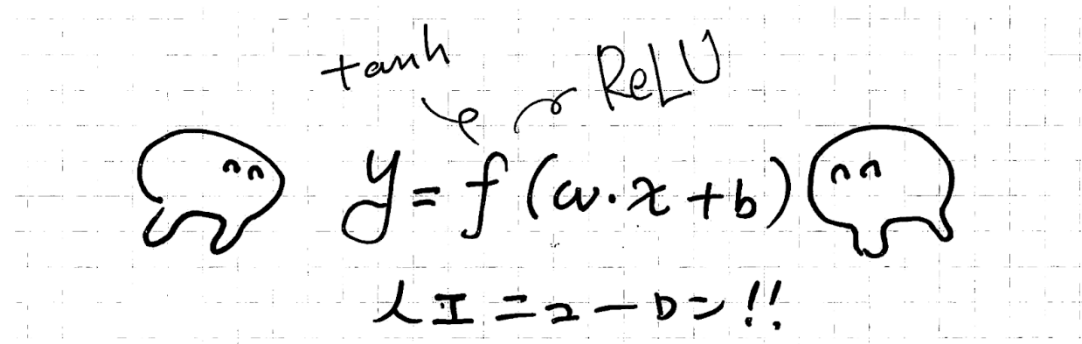 tanh ReLU
y = f(w·x+b)
人工ニューロン!!